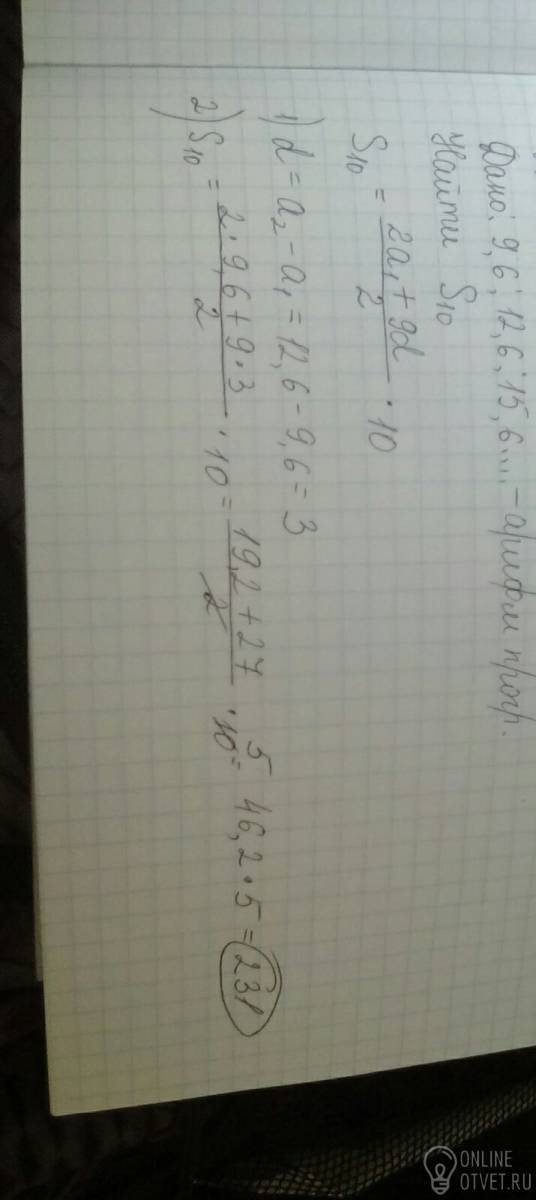 Дано: 9,6; 12,6; 15,6... – арифм прогр.
Найти S₁₀
S₁₀ = (2a₁ + 9d)/2 · 10
1) d = a₂ - a₁ = 12,6 - 9,6 = 3
2) S₁₀ = (2·9,6 + 9·3)/2 · 10 = (19,2 + 27)/2 · 10 5 = 46,2 · 5 = 231
ONLINE
OTVET.RU